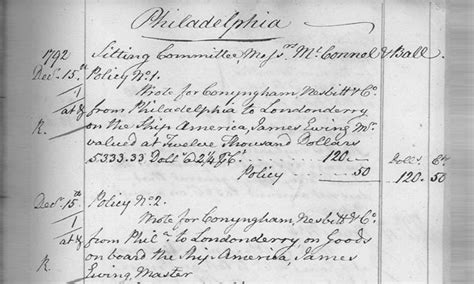 Philadelphia
1792 Sitting Committee Mess.rs Mc.Connel & Ball.
Dec.r 15.th Policy No.1.
1 Wrote for Conyngham Nesbitt & Co
at & from Philadelphia to Londonderry
R. on the Ship America, James Ewing Mr.
valued at Twelve Thousand Dollars
5333.33 Doll.s @ 2¼ 120 Doll.s Cts
Policy 50 120.50
Dec.r 15.th Policy No.2.
1 Wrote for Conyngham, Nesbitt & Co
at & from Phil.a to Londonderry on Goods
R. on board the Ship America, James
Ewing, Master